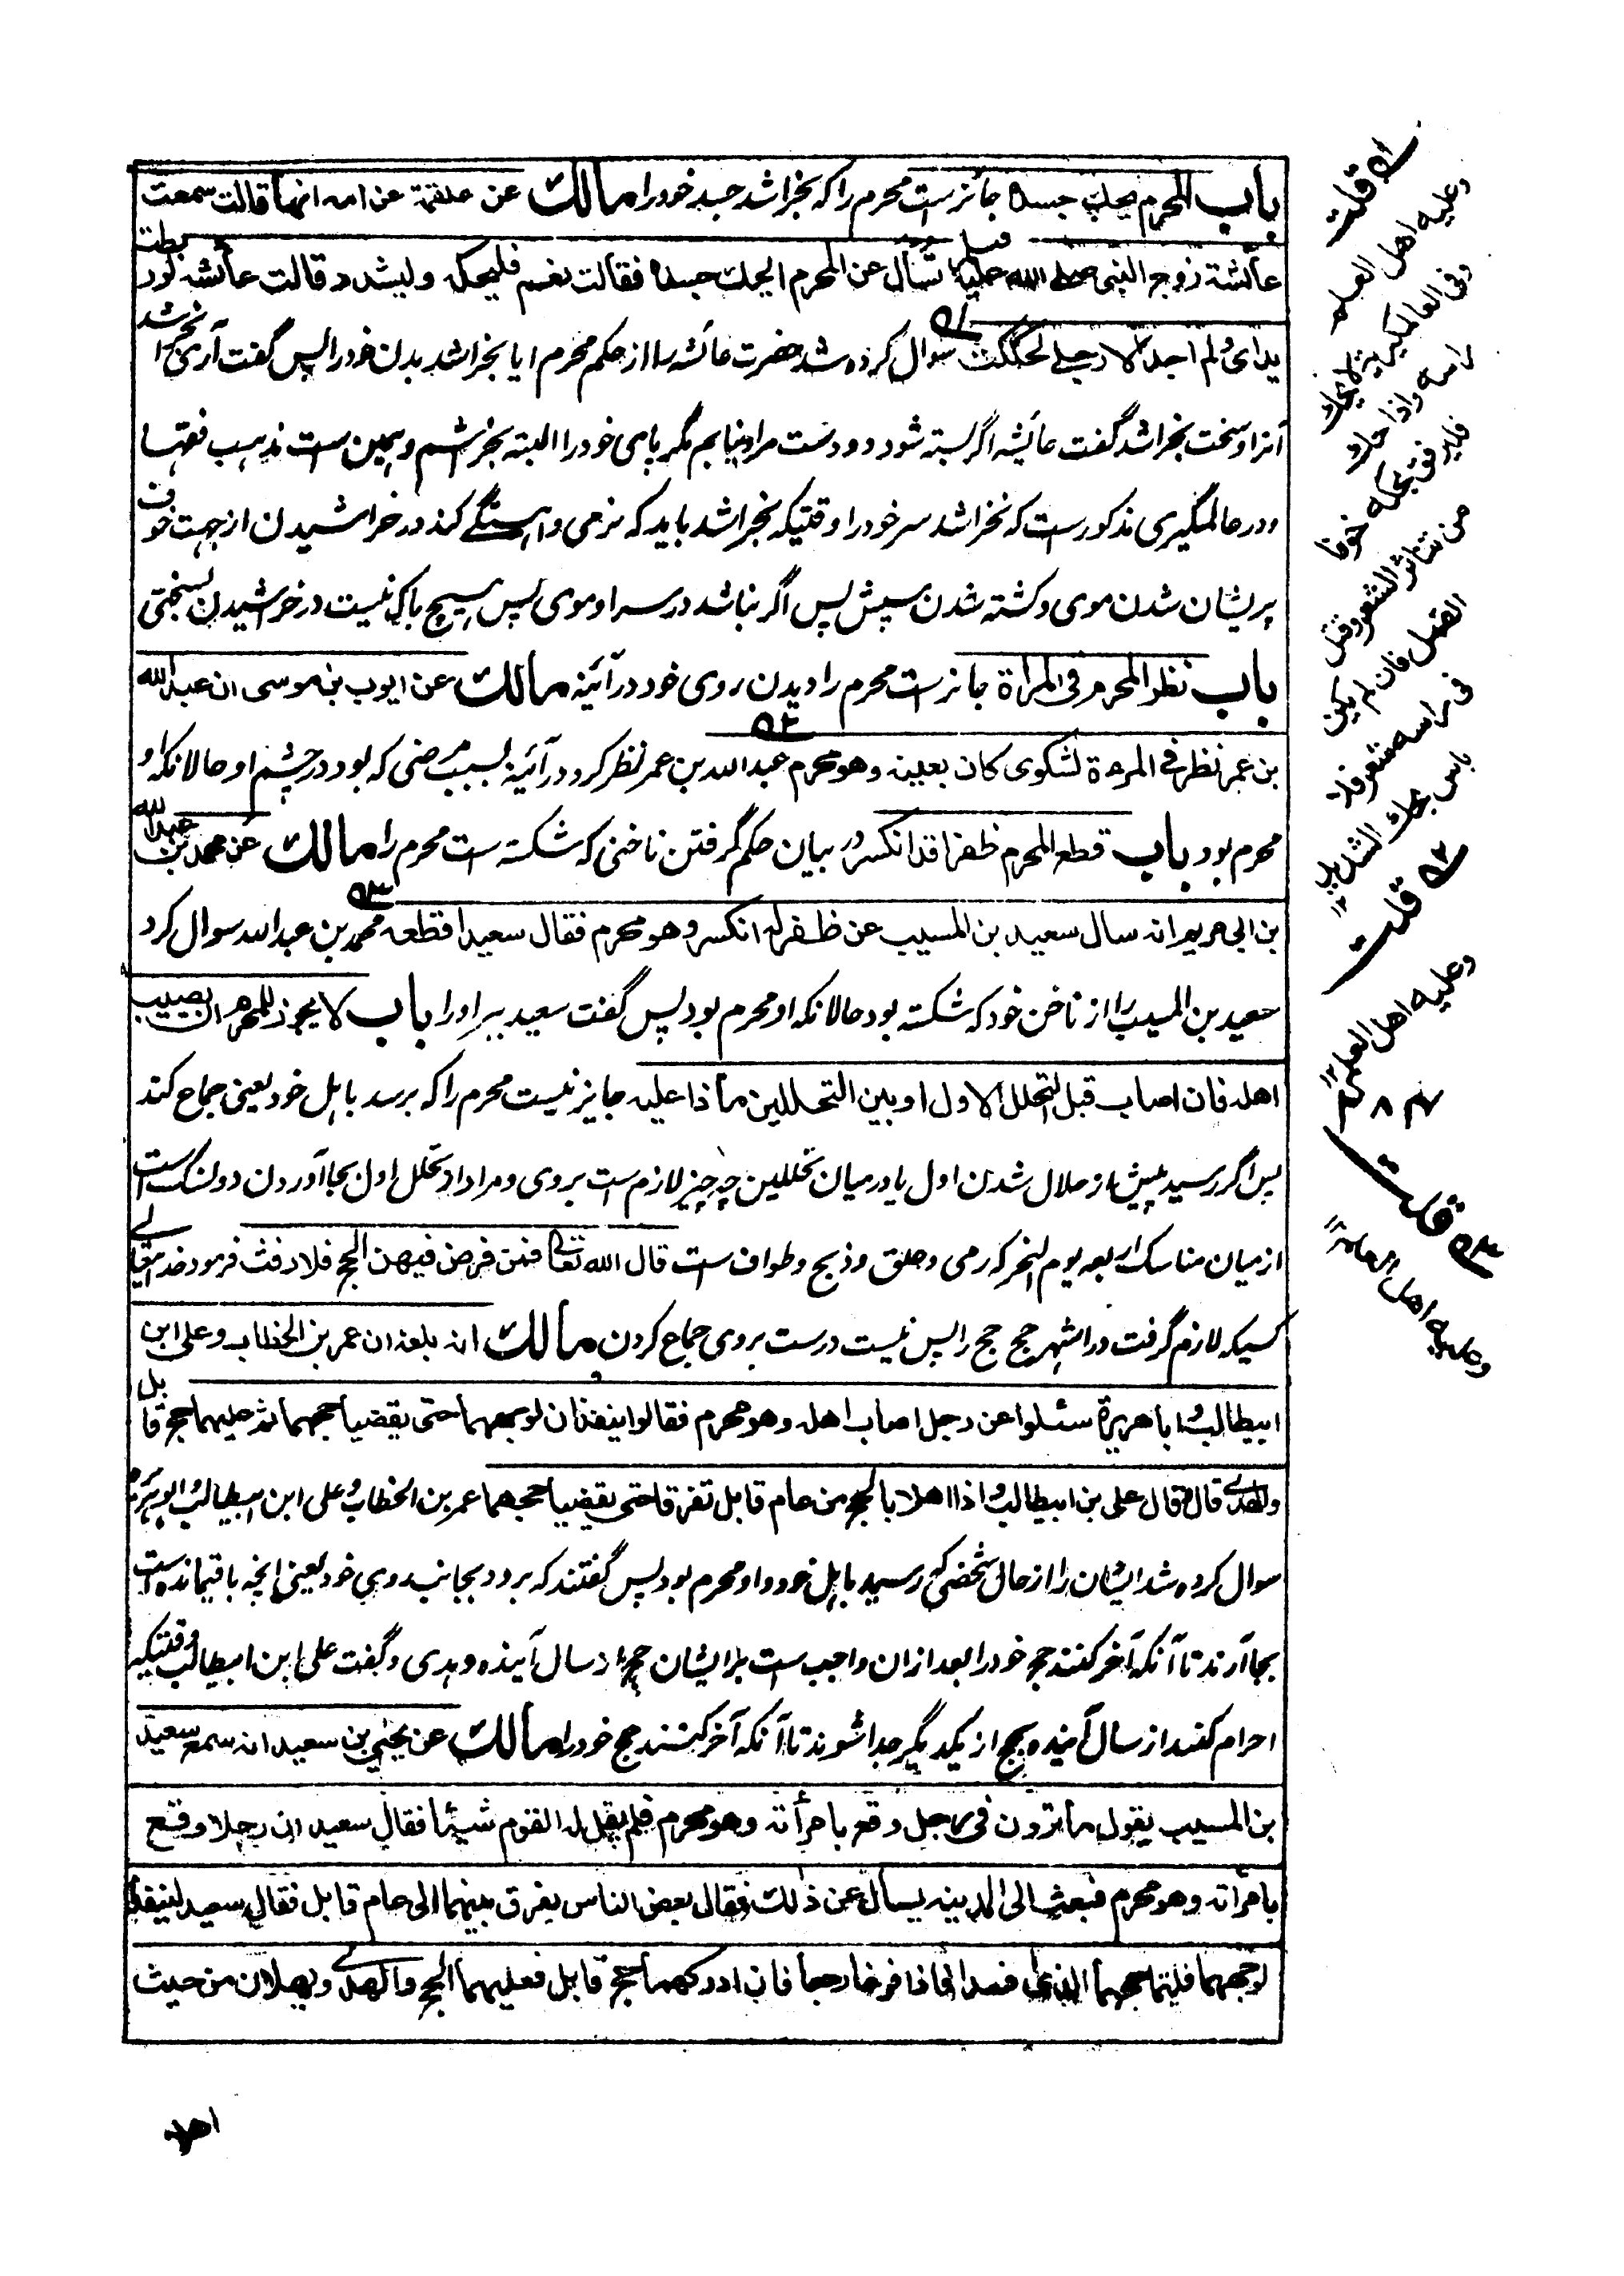 باب المحرم يحك جسده جائز ست محرم را که بخراشد جسد خود را مالك عن علقمة عن امه انها قالت سمعت
عائشة زوج النبى صلى الله عليه وسلم تسأل عن المحرم ايحك جسده فقالت نعم فليحكه وليشدد قالت عائشة لو ربطت
يداى ولم اجد الا رجلى لحككت سوال کرده شد حضرت عائشه را از حکم محرم ایا بخراشد بدن خود را پس گفت آرى بخراشد
آنرا و سخت بخراشد گفت عائشه اگر بسته شود دو دست مرا و نیابم مگر پاى خود را البته بخراشم و همین ست مذهب فقها
و در عالمگیرى مذکور ست که نخراشد سر خود را و قتیکه بخراشد باید که نرمى و اهستگے کند در خراشیدن از جهت خوف
پریشان شدن موى و کشته شدن سپش پس اگر نباشد در سر او موى پس هیچ باکى نیست در خراشیدن بسختى
باب نظر المحرم فى المرأة جائز ست محرم را دیدن روى خود در آئینه مالك عن ايوب بن موسى ان عبد الله
بن عمر نظر فى المرءة لشكوى كان بعينه وهو محرم عبد الله بن عمر نظر کرد در آئینه بسبب مرضى که بود در چشم او حالانکه او
محرم بود باب قطع المحرم ظفرا قد انكسر در بیان حکم گرفتن ناخنى که شکسته ست محرم را مالك عن محمد بن عبد الله
بن ابى مريم انه سال سعيد بن المسيب عن ظفر له انكسر وهو محرم فقال سعيد اقطعه محمد بن عبد الله سوال کرد
سعید بن المسیب را از ناخن خود که شکسته بود حالانکه او محرم بود پس گفت سعید ببر او را باب لا يجوز للمحرم ان يصيب
اهله فان اصاب قبل التحلل الاول او بين التحللين ماذا عليه جایز نیست محرم را که برسد باهل خود یعنى جماع کند
پس اگر رسید پیش از حلال شدن اول یا درمیان تحللین چه چیز لازم ست بروى و مراد از تحلل اول بجا آوردن دو نسک ست
از میان مناسک اربعه یوم النحر که رمى و حلق و ذبح و طواف ست قال الله تعالى فمن فرض فيهن الحج فلا رفث فرمود خداى تعالے
کسیکه لازم گرفت در اشهر حج حج را پس نیست درست بروى جماع کردن مالك انه بلغه ان عمر بن الخطاب وعلى ابن
ابيطالب وابا هريرة سئلوا عن رجل اصاب اهله وهو محرم فقالوا ينفذان لوجههما حتى يقضيا حجهما ثم عليهما حج قابل
والهدى قال قال على بن ابيطالب واذا اهلا بالحج من عام قابل تفرقا حتى يقضيا حجهما عمر بن الخطاب و على ابن ابیطالب و ابو هریره
سوال کرده شد ایشان را از حال شخصى که رسید باهل خود و او محرم بود پس گفتند که برود بجانب روى خود یعنى انچه باقیمانده ست
بجا آرند تا آنکه آخر کنند حج خود را بعد ازان واجب ست برایشان حج از سال آینده و هدى و گفت على ابن ابیطالب وقتیکه
احرام کنند از سال آینده بحج از یکدیگر جدا شوند تا آنکه آخر کنند حج خود را مالك عن يحيى بن سعيد انه سمع سعيد
بن المسيب يقول ما ترون فى رجل وقع بامرأته وهو محرم فلم يقل له القوم شيئا فقال سعيد ان رجلا وقع
بامرأته وهو محرم فبعث الى المدينه يسأل عن ذلك فقال بعض الناس يفرق بينهما الى عام قابل فقال سعيد لينفذا
لوجههما فليتما حجهما الذى افسداه فاذا فرغا رجعا فان ادركهما حج قابل فعليهما الحج والهدى ويهلان من حيث
اهلا
۵۱ قلت
وعليه اهل العلم
وفى العالمكيرية لا يحك
راسه واذا حك
فليرفق بحكه خوفا
من تناثر الشعر وقتل
القمل فان لم يكن
فى راسه شعر فلا
باس بحك الشديد ۱۲
۵۲ قلت
وعليه اهل العلم ۱۲
۵۳ قلت
وعليه اهل العلم ۱۲